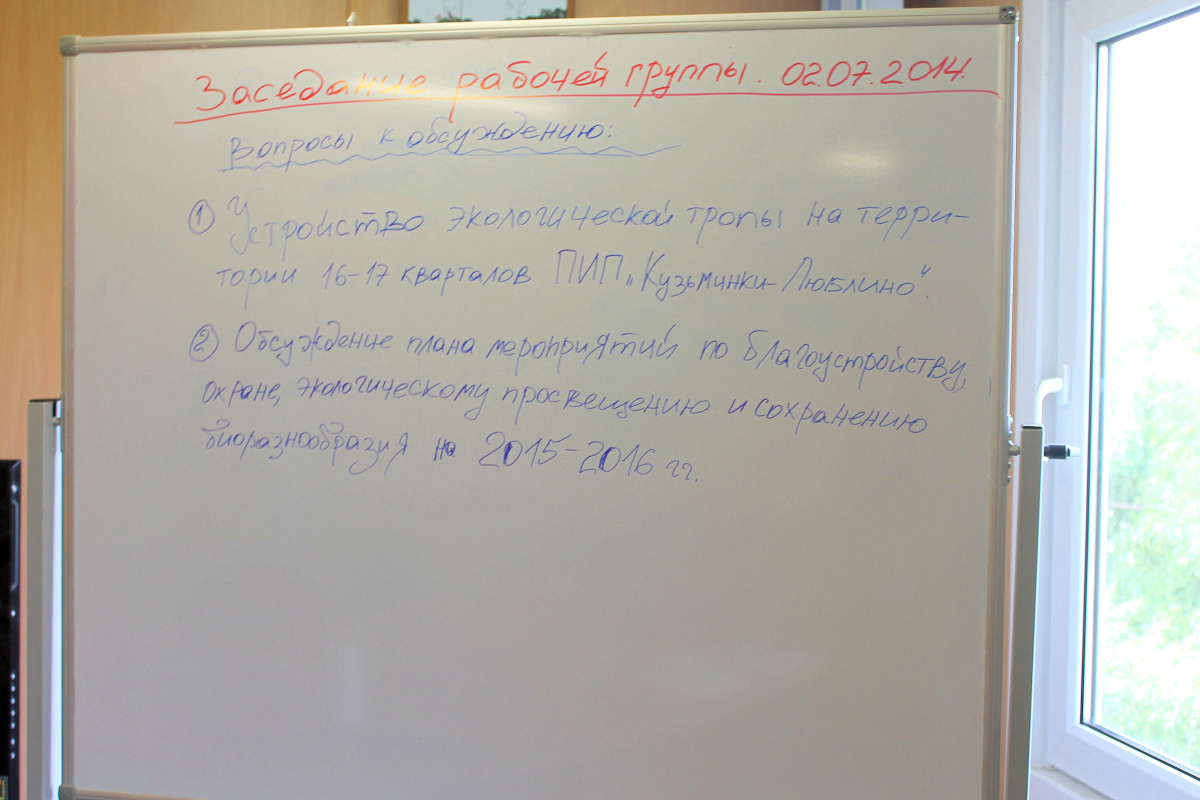 Заседание рабочей группы. 02.07.2014.
Вопросы к обсуждению:
① Устройство экологической тропы на терри-
тории 16-17 кварталов ПИП „Кузьминки-Люблино“.
② Обсуждение плана мероприятий по благоустройству,
охране, экологическому просвещению и сохранению
биоразнообразия на 2015-2016 гг.